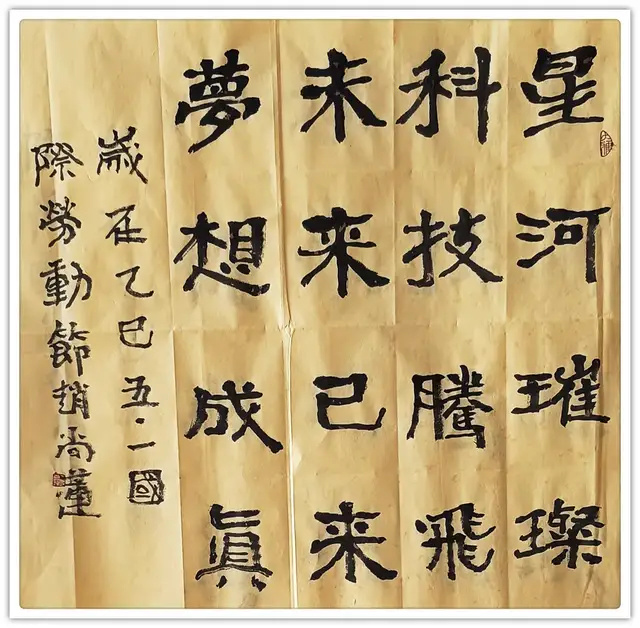 星河璀璨
科技騰飛
未来已来
夢想成真
歲在乙巳五·一國
際勞動節趙尚蓮